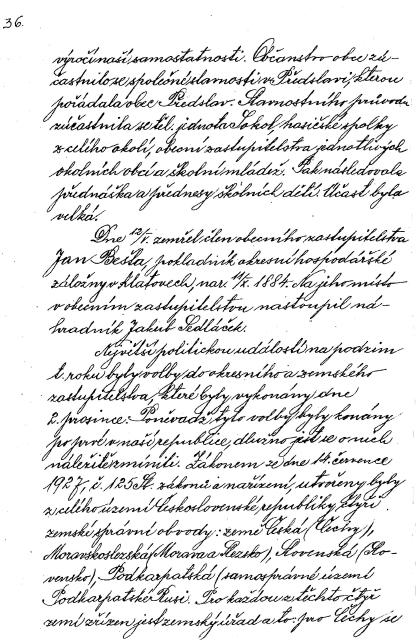 36.
výročí naší samostatnosti. Občanstvo obce zú-
častnilo se společné slavnosti v Předslavi, kterou
pořádala obec Předslav. Slavnostního průvodu
zúčastnila se těl. jednota Sokol, hasičské spolky
z celého okolí, obecní zastupitelstva jednotlivých
okolních obcí a školní mládež. Pak následovala
přednáška a přednesy školních dětí. Účast byla
velká.
Dne 12/V. zemřel člen obecního zastupitelstva
Jan Bešta, pokladník okresní hospodářské
záložny v Klatovech, nar. 11/X. 1884. Na jeho místo
v obecním zastupitelstvu nastoupil ná-
hradník Jakub Sedláček.
Největší politickou událostí na podzim
t. roku byly volby do okresního a zemského
zastupitelstva, které byly vykonány dne
2. prosince. Poněvadž tyto volby byly konány
po prvé v naší republice, dlužno jest se o nich
náležitě zmíniti. Zákonem ze dne 14. července
1927, č. 125 Sb. zákonů a nařízení, utvořeny byly
z celého území Československé republiky čtyři
zemské správní obvody: země Česká (Čechy),
Moravskoslezská (Morava a Slezsko), Slovenská (Slo-
vensko), Podkarpatská (samosprávné území
Podkarpatské Rusi. Pro každou z těchto čtyř
zemí zřízen jest zemský úřad a to: pro Čechy se